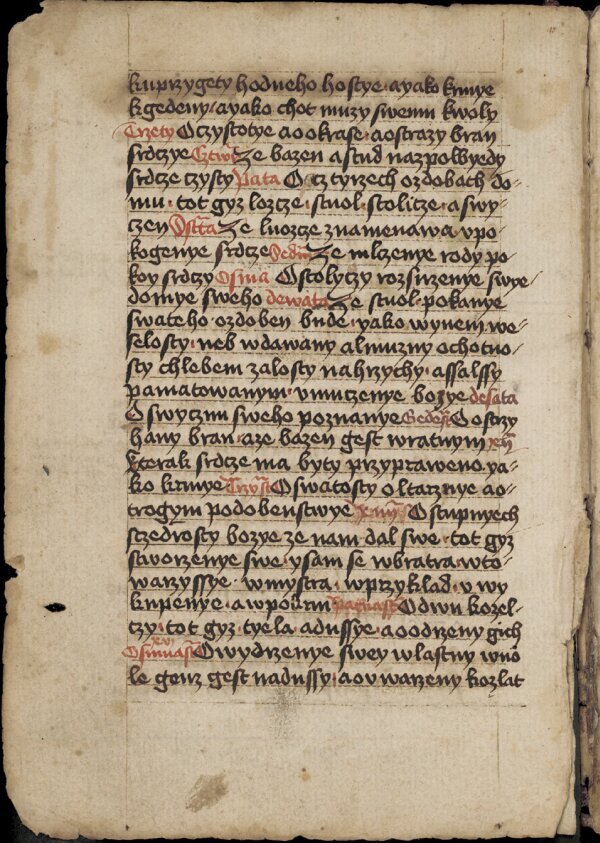 kuprzygety hodneho hostye · ayako krmye
kgedeny · ayako chot muzy swemu kwoly
Trzety O czystotye aookrase · aostrazy bran
srdczye Cztwrta Ze bazen astud nazpolwyedy
srdcze czysty Pata O cztyrzech ozdobach do-
mu · tot gyz lozcze · stuol · stolicze · aswy-
czen Ssta Ze luozcze znamenawa · vpo-
kogenye srdcze Sedm Ze mlczenye rody po-
koy srdczy Osma O stolyczy rozsirzenye swye-
domye sweho dewata Ze stuol · pokanye
swateho · ozdoben bude · yako wynem we-
selosty · neb wdawany almuzny ochotno-
sty chlebem zalosty nahrzychy · assalssy
pamatowanym · vmuczenye bozye desata
O swyczni sweho poznanye Geden O ostrzy
hany bran · aze bazen gest wratnym xij
kterak srdcze ma byty przypraweno · ya-
ko krmye Trzyst O swatosty oltarznye ao-
trogym podobenstwye xiiij O stupnyech
sczedrosty bozye ze nam dal swe · tot gyz
stworzenye swe · ysam se wbratra · wto-
warzyssye · wmystra · wprzyklad · v wy
kupenye · awpokrm patnast O dwu kozel-
czy · tot gyz · tyela · adussye · aoodrzeny gich
xvj
Osmnast O wydrzenye swey wlastny wuo
le genz gest nadussy · aovwarzeny kozlat